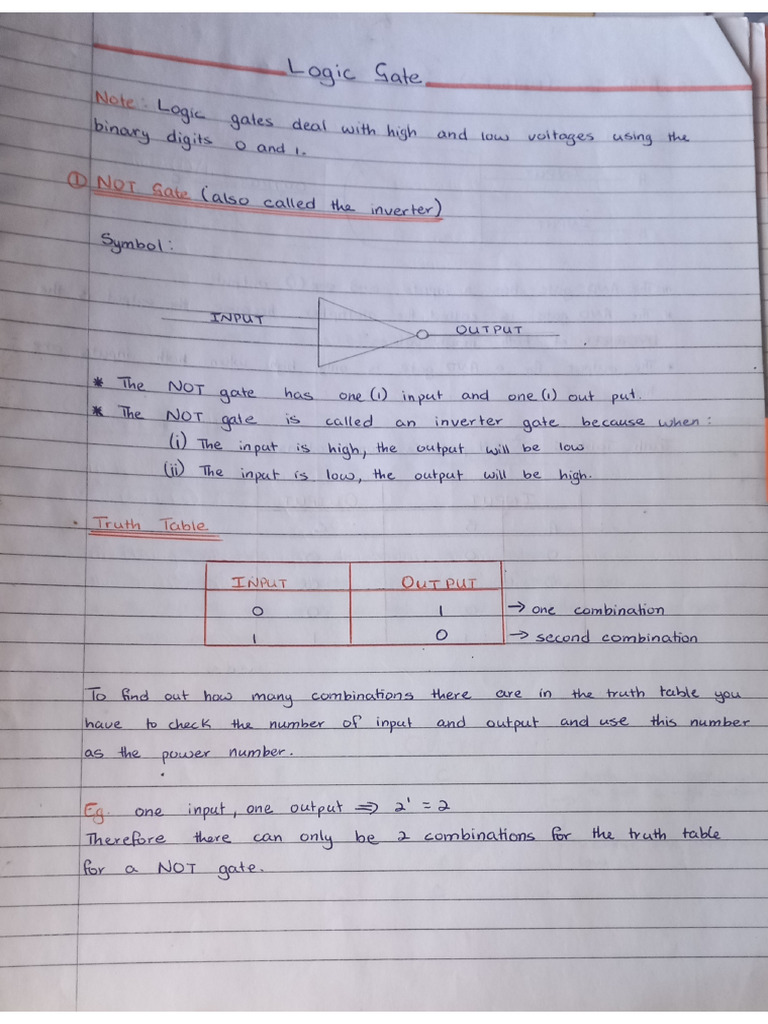 Logic Gate
Note: Logic gates deal with high and low voltages using the
binary digits 0 and 1.
① NOT Gate (also called the inverter)
Symbol:
INPUT
OUTPUT
* The NOT gate has one (1) input and one (1) out put.
* The NOT gate is called an inverter gate because when:
(i) The input is high, the output will be low
(ii) The input is low, the output will be high.
Truth Table
INPUT OUTPUT
0 1 → one combination
1 0 → second combination
To find out how many combinations there are in the truth table you
have to check the number of input and output and use this number
as the power number.
Eg. one input, one output ⇒ 2¹ = 2
Therefore there can only be 2 combinations for the truth table
for a NOT gate.